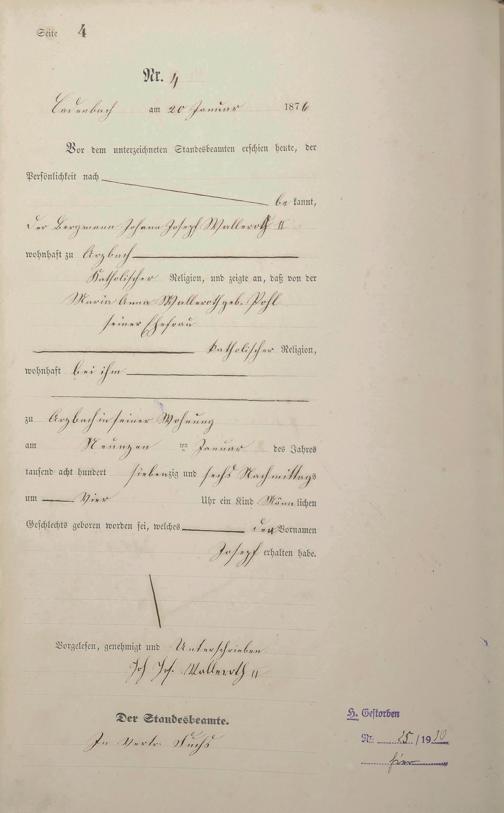 Seite 4
Nr. 4
Cadenbach am 20 Januar 1876
Vor dem unterzeichneten Standesbeamten erschien heute, der
Persönlichkeit nach
be kannt,
der Bergmann Johann Josef Walleroth II
wohnhaft zu Arzbach
Katholischer Religion, und zeigte an, daß von der
Maria Anna Walleroth geb. Pohl
seiner Ehefrau
katholischer Religion,
wohnhaft bei ihm
zu Arzbach in seiner Wohnung
am Neunzen ten Januar des Jahres
tausend acht hundert siebenzig und sechs Nachmittags
um Vier Uhr ein Kind Männlichen
Geschlechts geboren worden sei, welches den Vornamen
Josef erhalten habe.
Vorgelesen, genehmigt und Unterschrieben
Joh Jos. Walleroth II
Der Standesbeamte.
In Vertr. Fuchs
H. Gestorben
Nr. 25/1930
hier